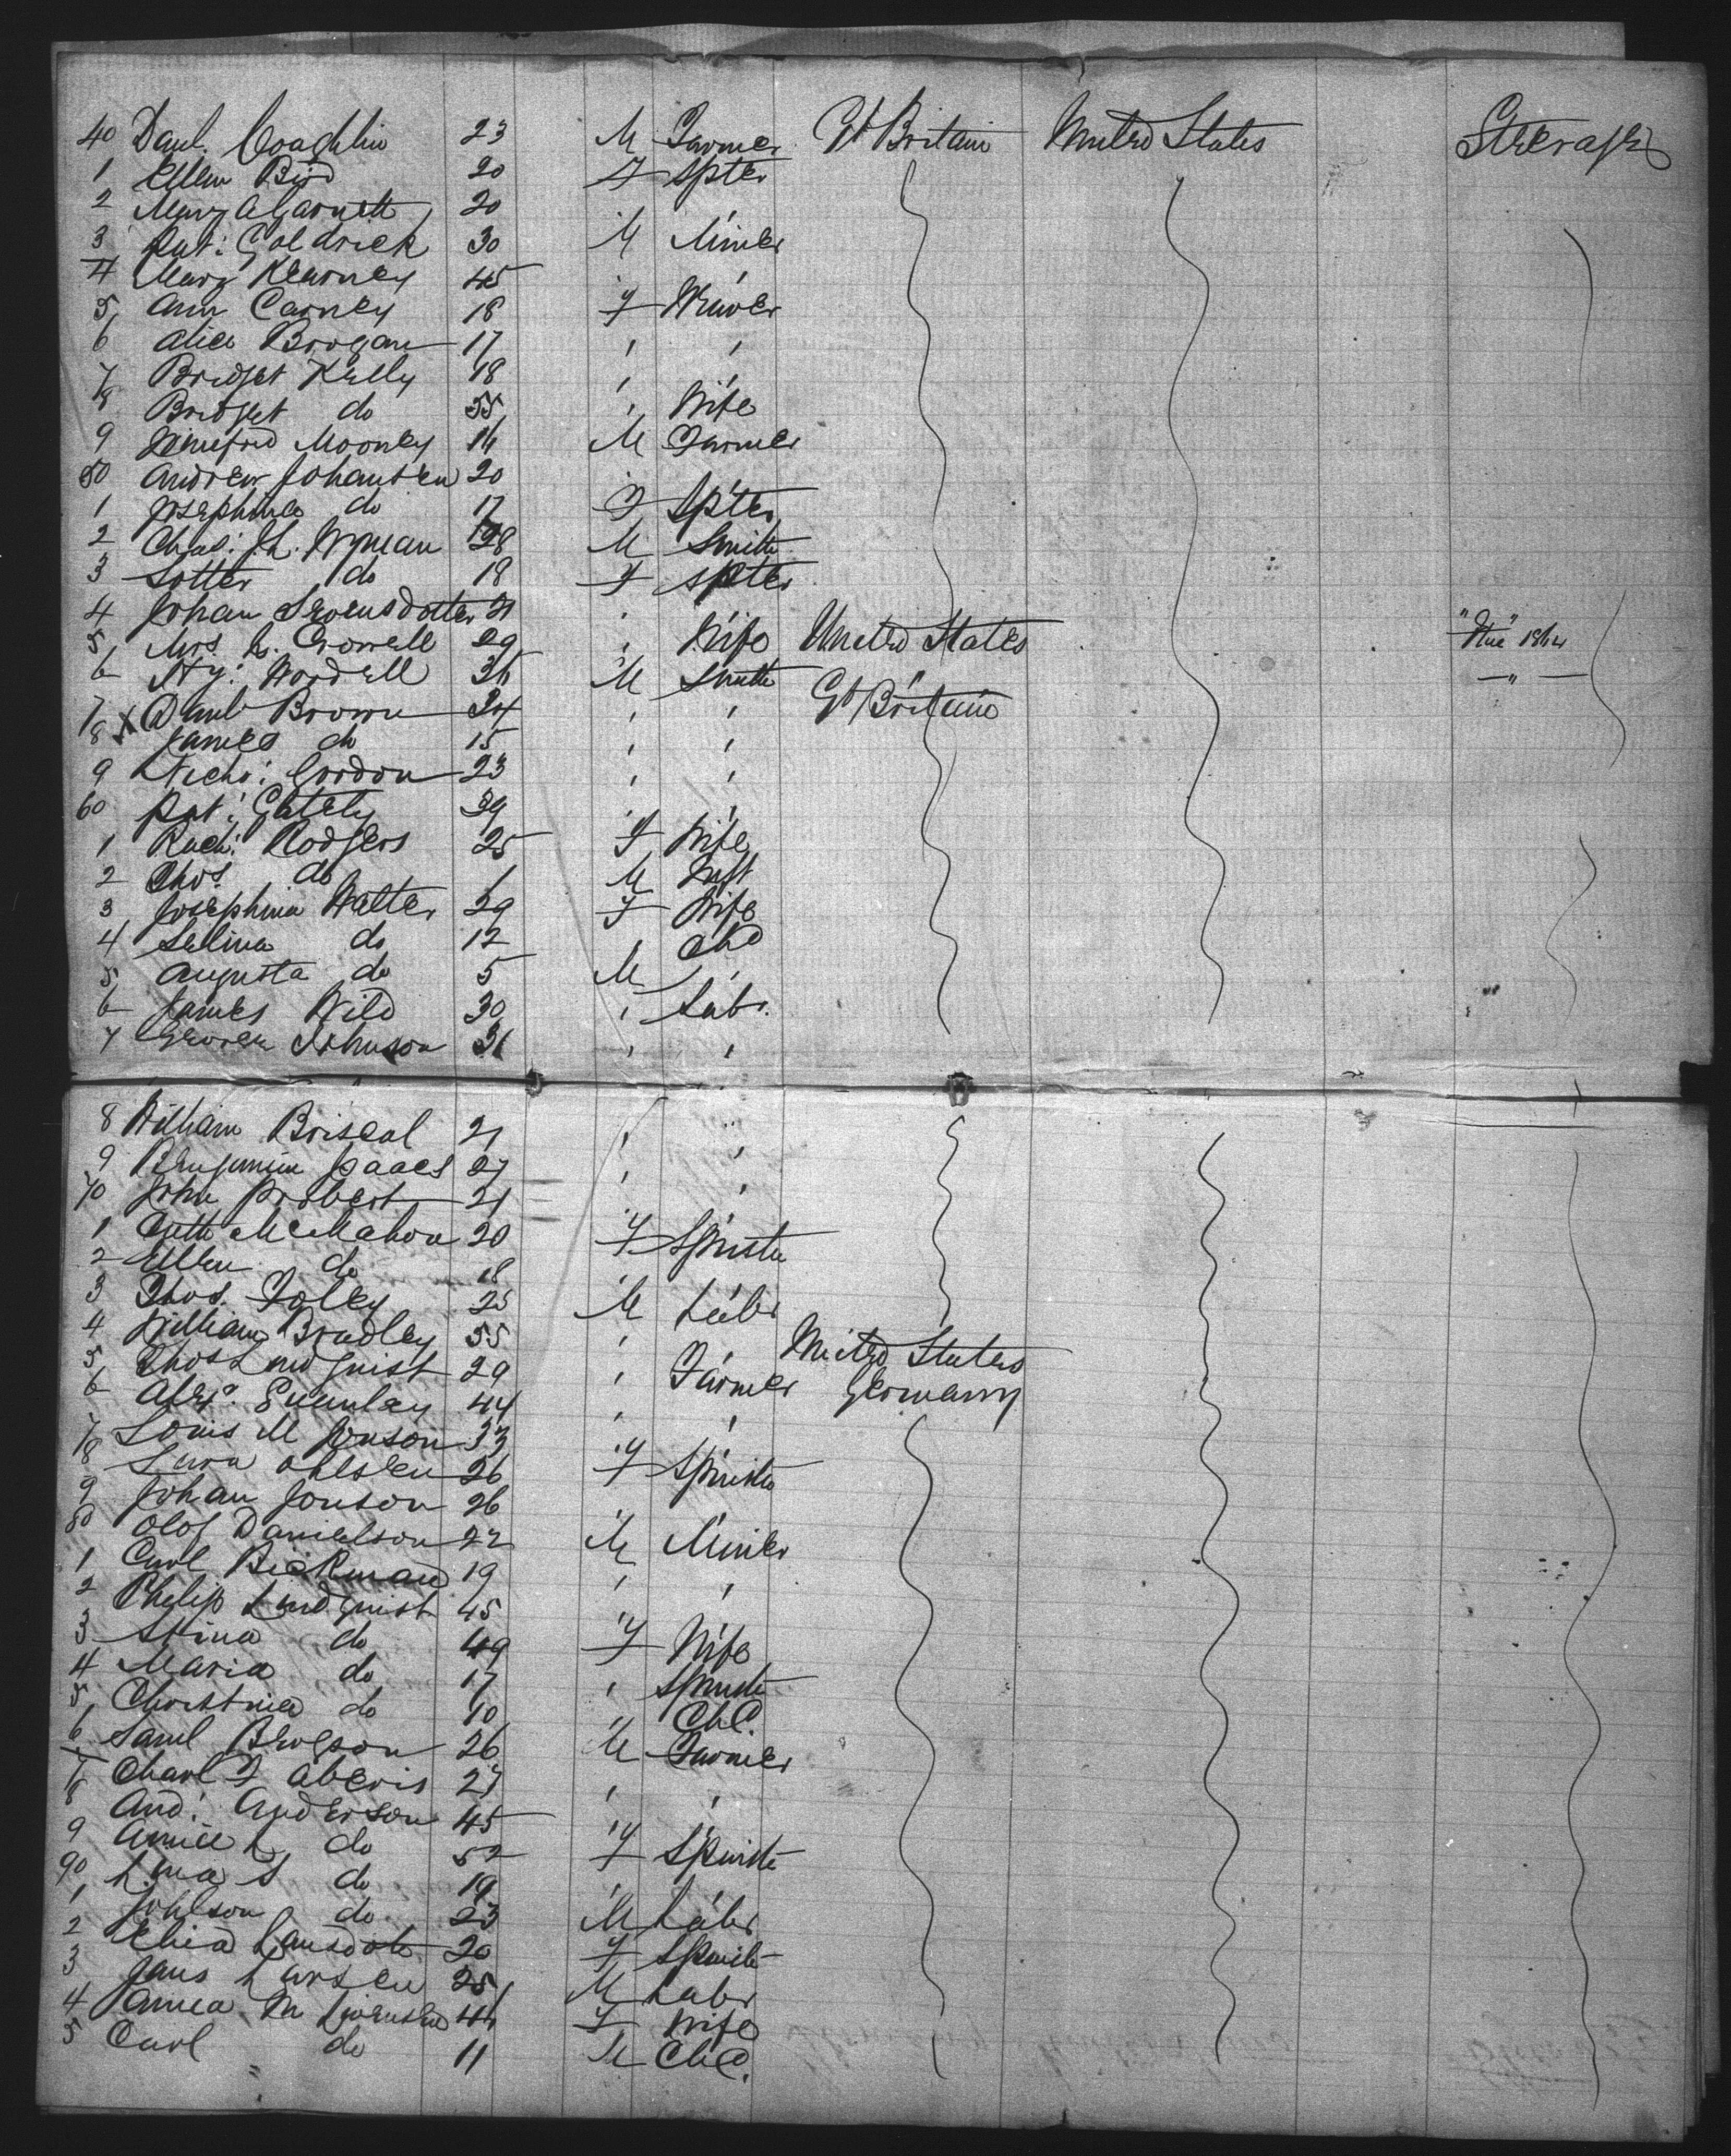 40 Danl. Coaghlin 23 M Farmer Gt Britain United States Steerage
1 Ellen Bird 20 F Spter
2 Mary A Garnett 20 "
3 Pat: Goldrick 30 M Miner
4 Mary Kearney 45 "
5 Ann Carney 18 F Weaver
6 Alice Brogan 17 " "
7 Bridget Kelly 18 " "
8 Bridget do 35 " Wife
9 Winefrid Mooney 14 M Farmer
50 Andrew Johansen 20 "
1 Josephine do 17 F Spter
2 Chas: J.L. Nyman 28 M Smith
3 Lotter do 18 F Spter
4 Johan Svensdotter 21 "
5 Mrs L. Crowell 29 " Wife United States
6 Hy: Wardell 36 M Smith "
7 X Danl Brown 34 " " Gt Britain
8 James do 15 " "
9 Nichs: Gordon 23 " "
60 Pat: Gately 39 " "
1 Rach: Rodgers 25 F Wife
2 Thos. do 1 M Inft
3 Josephina Walter 29 F Wife
4 Selina do 12 " Chd
5 Augusta do 5 M "
6 James Wild 30 " Labr.
7 George Johnson 31 " "
8 William Briscal 21 " "
9 Benjamin Isaacs 27 " "
70 John Probert 21 " "
1 Cath McMahon 20 F Spinster
2 Ellen do 18 "
3 Thos. Foley 25 M Labr
4 William Bradley 55 " " United States
5 Thos Lindquist 29 " Farmer Germany
6 Alexr. 44 " "
7 Louis M Jonson 33 " "
8 Sara Ohlsen 26 F Spinster
9 Johan Jonson 26 "
80 Olof Danielson 22 M Miner
1 Carl Beckman 19 " "
2 Philip Lindquist 45
3 Stina do 49 F Wife
4 Maria do 17 " Spinster
5 Christina do 10 " Chd.
6 Saml Bengson 26 M Farmer
7 Charl F Aberis 27 " "
8 And: Anderson 45 "
9 Annie L do 52 F Spinster
90 Lina S do 19 "
1 Johlson do 23 M Labr
2 20 F Spinster
3 Jans Larsen 25 M Labr
4 Anna M 44 F Wife
5 Carl do 11 M Chd.